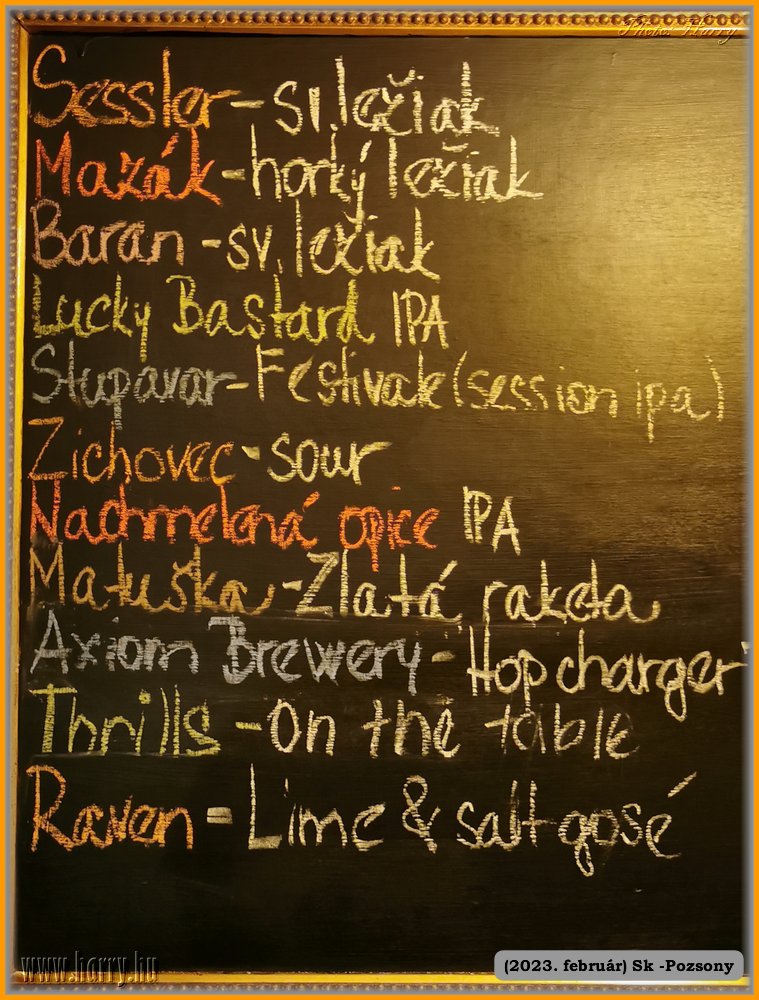 Photo: Harry
Sessler - sv. ležiak
Mazák - horký ležiak
Baran - sv. ležiak
Lucky Bastard IPA
Stupavar - Festivale (session ipa)
Zichovec - sour
Nachmelená opice IPA
Matuška - Zlatá raketa
Axiom Brewery - Hop charger
Thrills - On the table
Raven = Lime & salt gosé
www.harry.hu
(2023. február) Sk -Pozsony